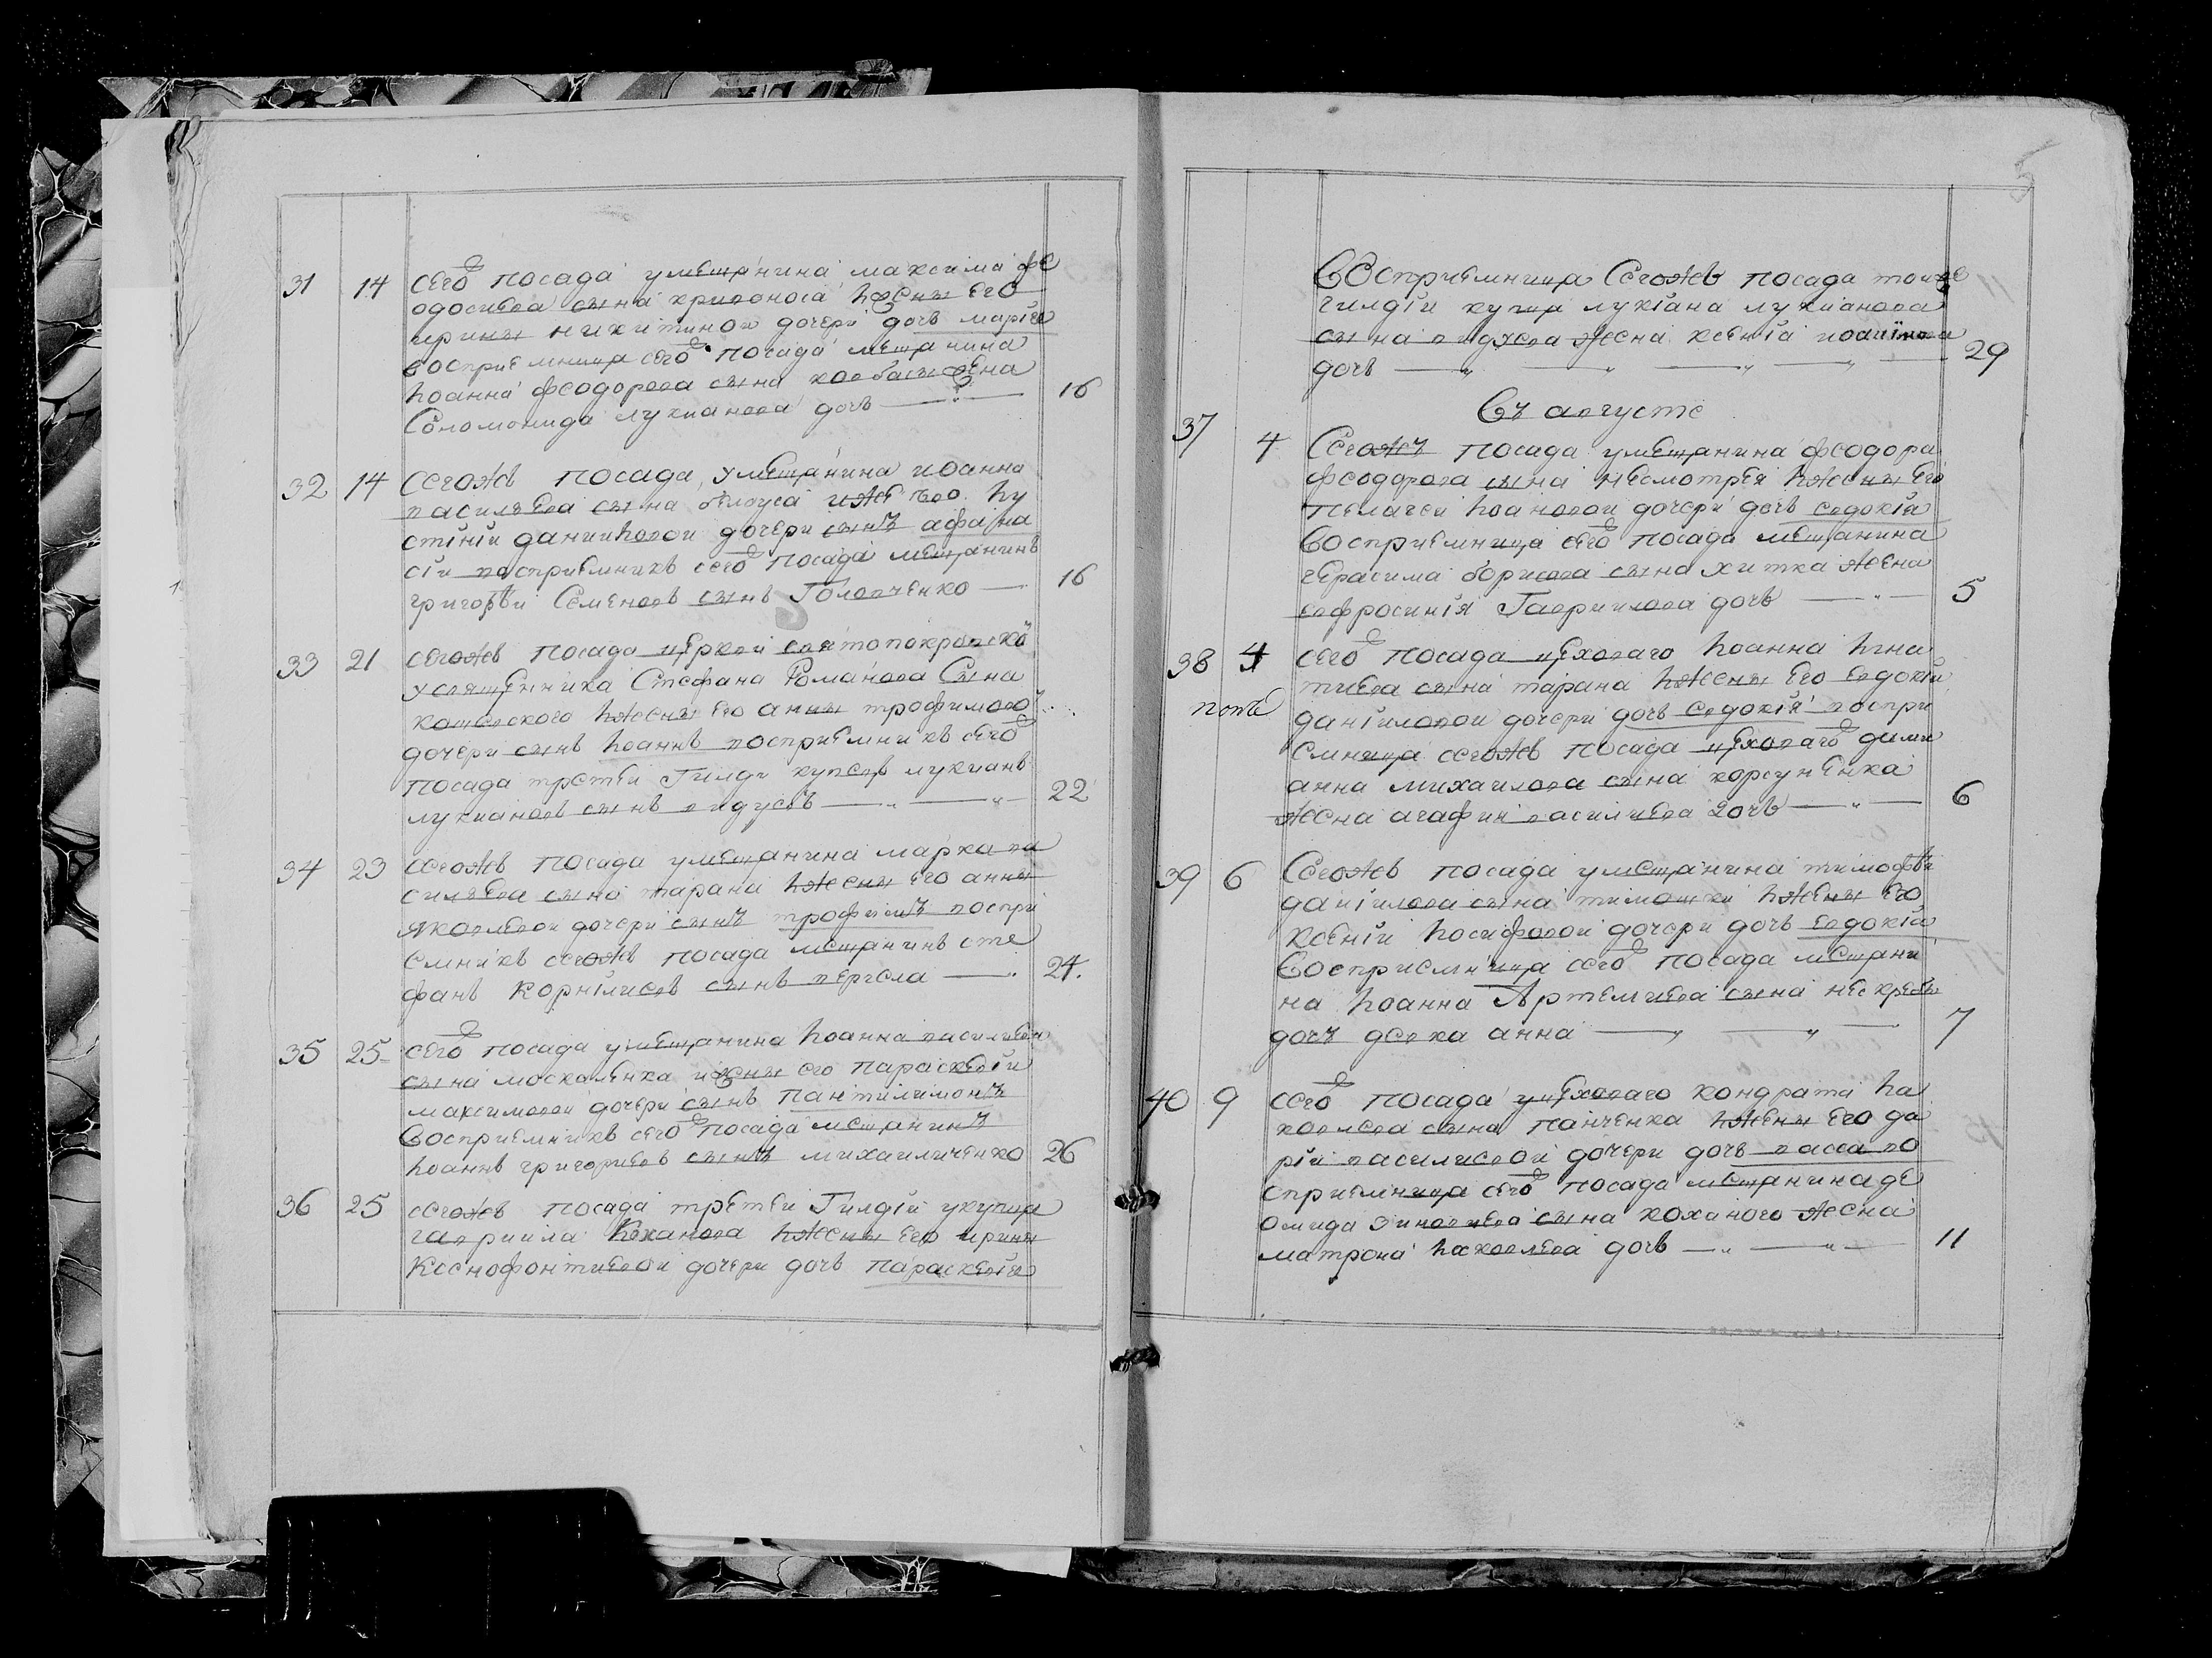 31 14 сего посада умещанина максима фе
одосиева сына кривоноса ижены его
ирины никитиной дочери дочь марiи
восприемница сего посада мещанина
иоанна феодорова сына жена
Соломонида лукианова дочь 16
32 14 сегожъ посада умещанина иоанна
василъева сына белоуса ижены его иу
стiнiи данииловои дочери сынъ афана
сiй восприемникъ сего посада мещанинъ
григорѣи Семеновъ сынъ Головченко 16
33 21 сегожъ посада церкви святопокровскои
усвященника Стефана Романова Сына
кошевского ижены его анны трофимовой
дочери сынъ иоаннъ восприемникъ сего
посада третьи Гилди купецъ лукианъ
лукиановъ сынъ видусовъ 22
34 23 сегожъ посада умещанина марка ва
силъева сына тарана ижены его анны
яковлевои дочери сынъ трофимъ воспри
емникъ сегожъ посада мещанинъ сте
фанъ Корнiлиевъ сынъ верегела 24.
35 25 сего посада умещанина иоанна василиева
сына москаленка ижены его параскевiи
максимовои дочери сынъ пантилимонъ
восприемникъ сего посада мещанинъ
иоаннъ григориевъ сынъ михаиличенко 26
36 25 сегожъ посада третьи Гилдiи укупца
гавриила Коханова ижены его ирины
Ксенофонтиевои дочери дочь параскевiи
5
восприемница Сегожъ посада
гилдiи купца лукiана лукианова
сына видусова жена ксенiiа
дочь 29
Въ августе
37 4 Сегожъ посада умещанина феодора
феодорова сына несмотрея ижены его
пелагеи иоановои дочери дочь евдокiи
восприемница сего посада мещанина
герасима борисова сына хитка жена
евфросинiя Гавриилова дочь 5
38 4 сего посада цеховаго иоанна игна
тиева сына тарана ижены его евдокiи
данiиловои дочери дочь евдокiя воспри
емница сегожъ посада цеховаго дами
анна михаилова сына корсуненка
жена агафии василиева дочь 6
39 6 Сегожъ посада умещанина тимофѣи
данiилова сына тимошки ижены его
ксенiи иосифовои дочери дочь евдокiи
восприемница сего посада мещани
на иоанна Артемиева сына
дочь девка анна 7
40 9 сего посада уцеховаго кондрата иа
ковлева сына панченка ижены его да
рiи василиевои дочери дочь васса во
сприемница сего посада мещанина де
омида зиновиева сына коханого жена
матрона иаковлева дочь 11